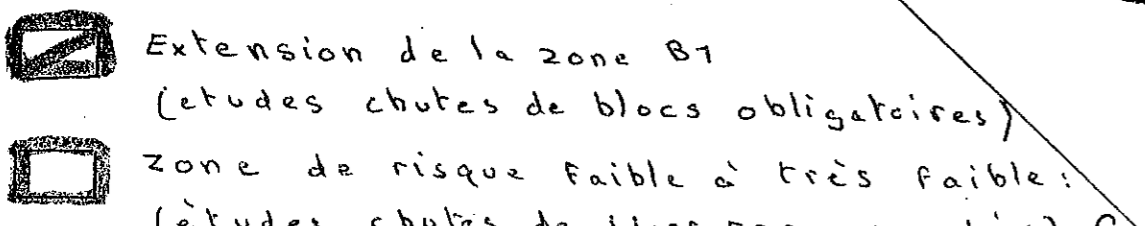 Extension de la zone B1
(etudes chutes de blocs obligatoires)
zone de risque faible à très faible:
(études chutes de